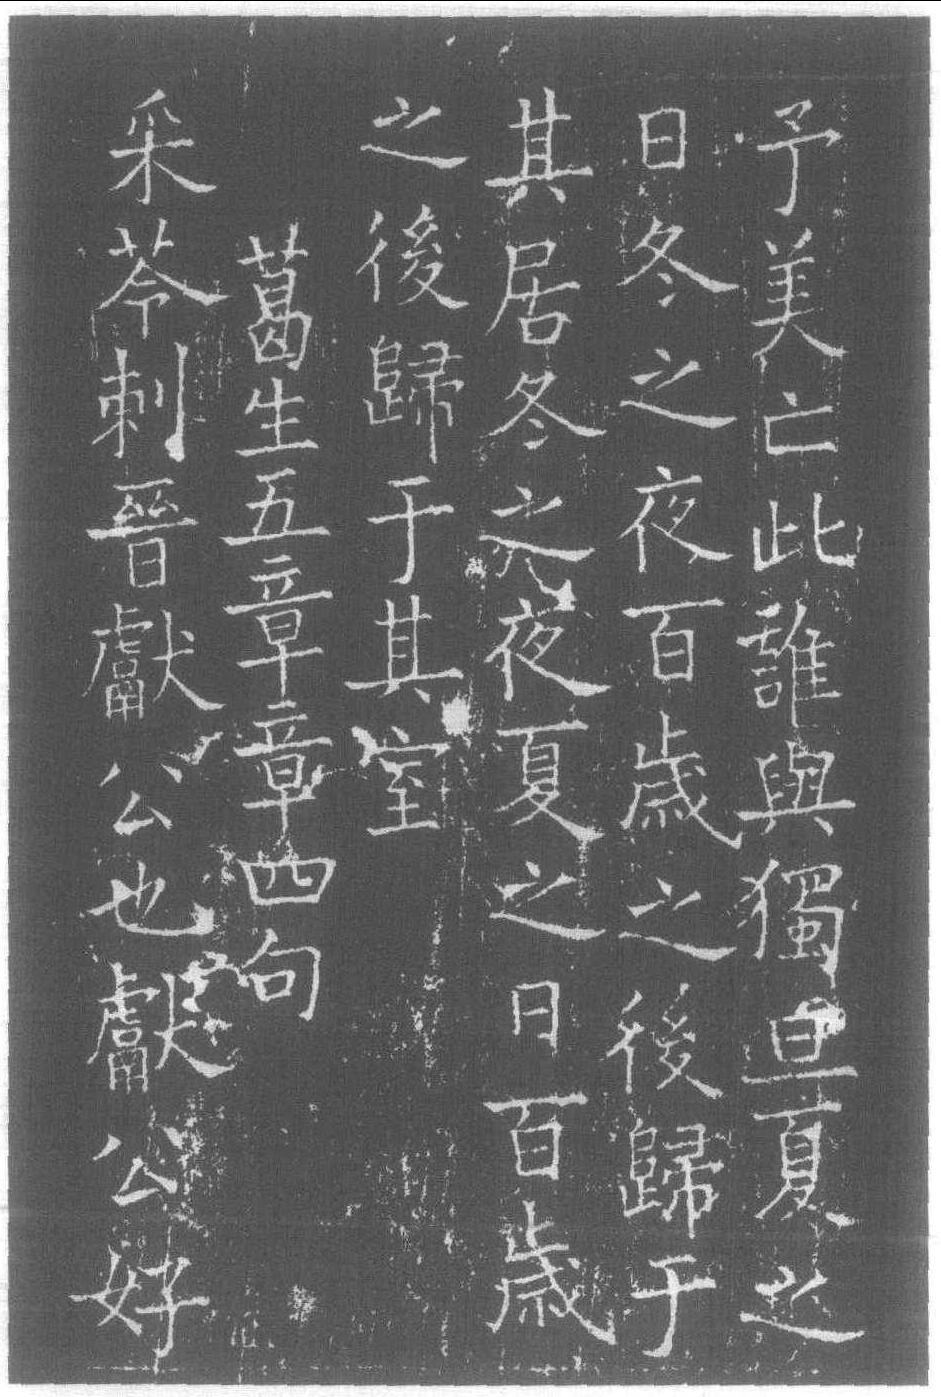 予美亡此誰與獨旦夏之
日冬之夜百歲之後歸于
其居冬之夜夏之日百歲
之後歸于其室
葛生五章章四句
采苓刺晉獻公也獻公好